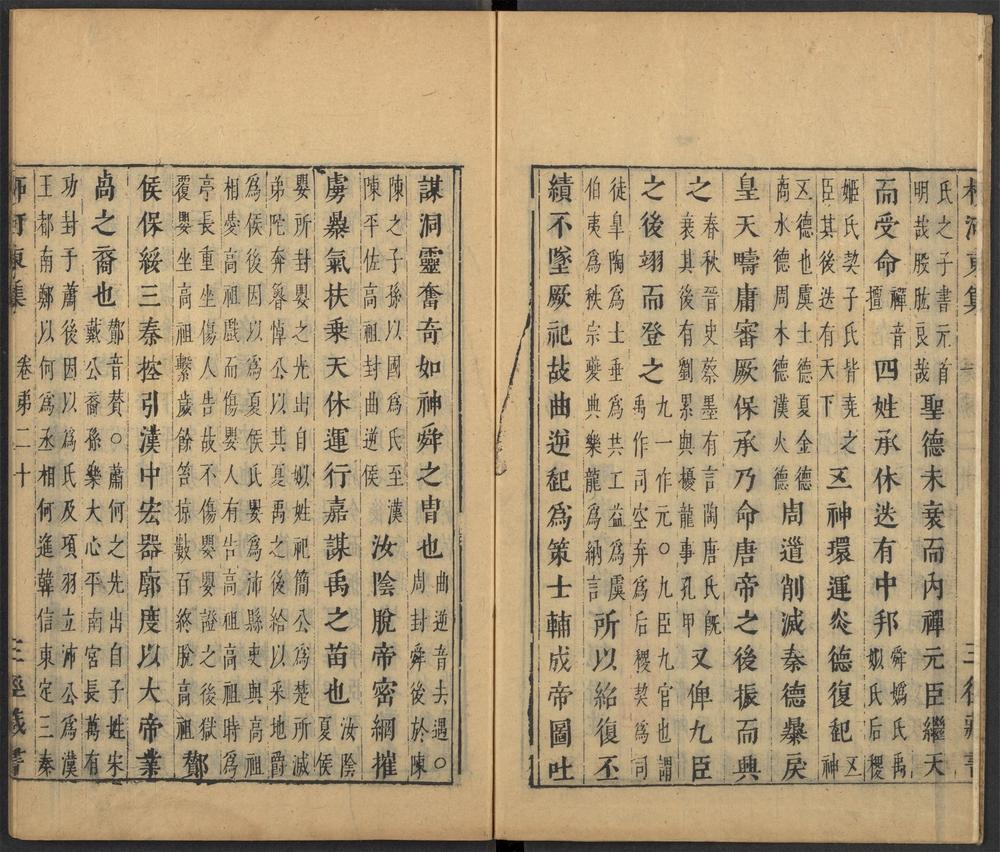 柳河東集 三徑藏書
氏之子書元首明哉股肱良哉聖德未衰而內禪元臣繼天
而受命禪音擅四姓承休迭有中邦舜嬀氏禹姒氏后稷
姬氏契子氏皆堯之臣其後迭有天下五神環運炎德復起五神
五德也虞土德夏金德商水德周木德漢火德周道削滅秦德暴戾
皇天疇庸審厥保承乃命唐帝之後振而興
之春秋晉史蔡墨有言陶唐氏旣衰其後有劉累與擾龍事孔甲又俾九臣
之後翊而登之九一作元○九臣九官也謂禹作司空弃爲后稷契爲司
徒皐陶爲士垂爲共工益爲虞伯夷爲秩宗夔典樂龍爲納言所以紹復丕
績不墜厥祀故曲逆起爲策士輔成帝圖吐
謀洞靈奮奇如神舜之胄也曲逆音去遇○周封舜後於陳
陳之子孫以國爲氏至漢陳平佐高祖封曲逆侯汝陰脫帝密網摧
虜暴氣扶乗天休運行嘉謀禹之苗也汝陰夏侯
嬰所封嬰之先出自姒姓祀簡公爲楚所滅弟佗奔魯悼公以其夏禹之後給以采地爵
爲侯後因以爲夏侯氏嬰爲沛縣吏與高祖相愛高祖戲而傷嬰人有告高祖高祖時爲
亭長重坐傷人告故不傷嬰嬰證之後獄覆嬰坐高祖繫歲餘笞掠數百終脫高祖酇
侯保綏三秦控引漢中宏器廓度以大帝業
卨之裔也酇音賛○蕭何之先出自子姓宋戴公裔孫樂大心平南宮長萬有
功封于蕭後因以爲氏及項羽立沛公爲漢王都南鄭以何爲丞相何進韓信東定三秦
柳河東集 卷第二十 三徑藏書